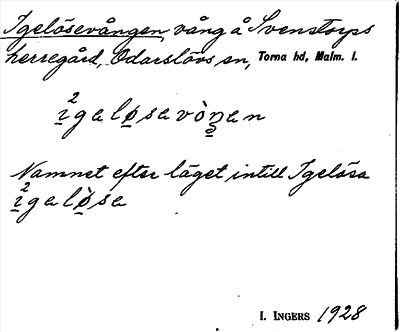 Igelösevången, vång å Svenstorps
herregård, Odarslövs sn, Torna hd, Malm. l.
²i̲gelø̲sevòŋ̲en
Namnet efter läget intill Igelösa
²i̲gelø̲̀se
I. INGERS 1928